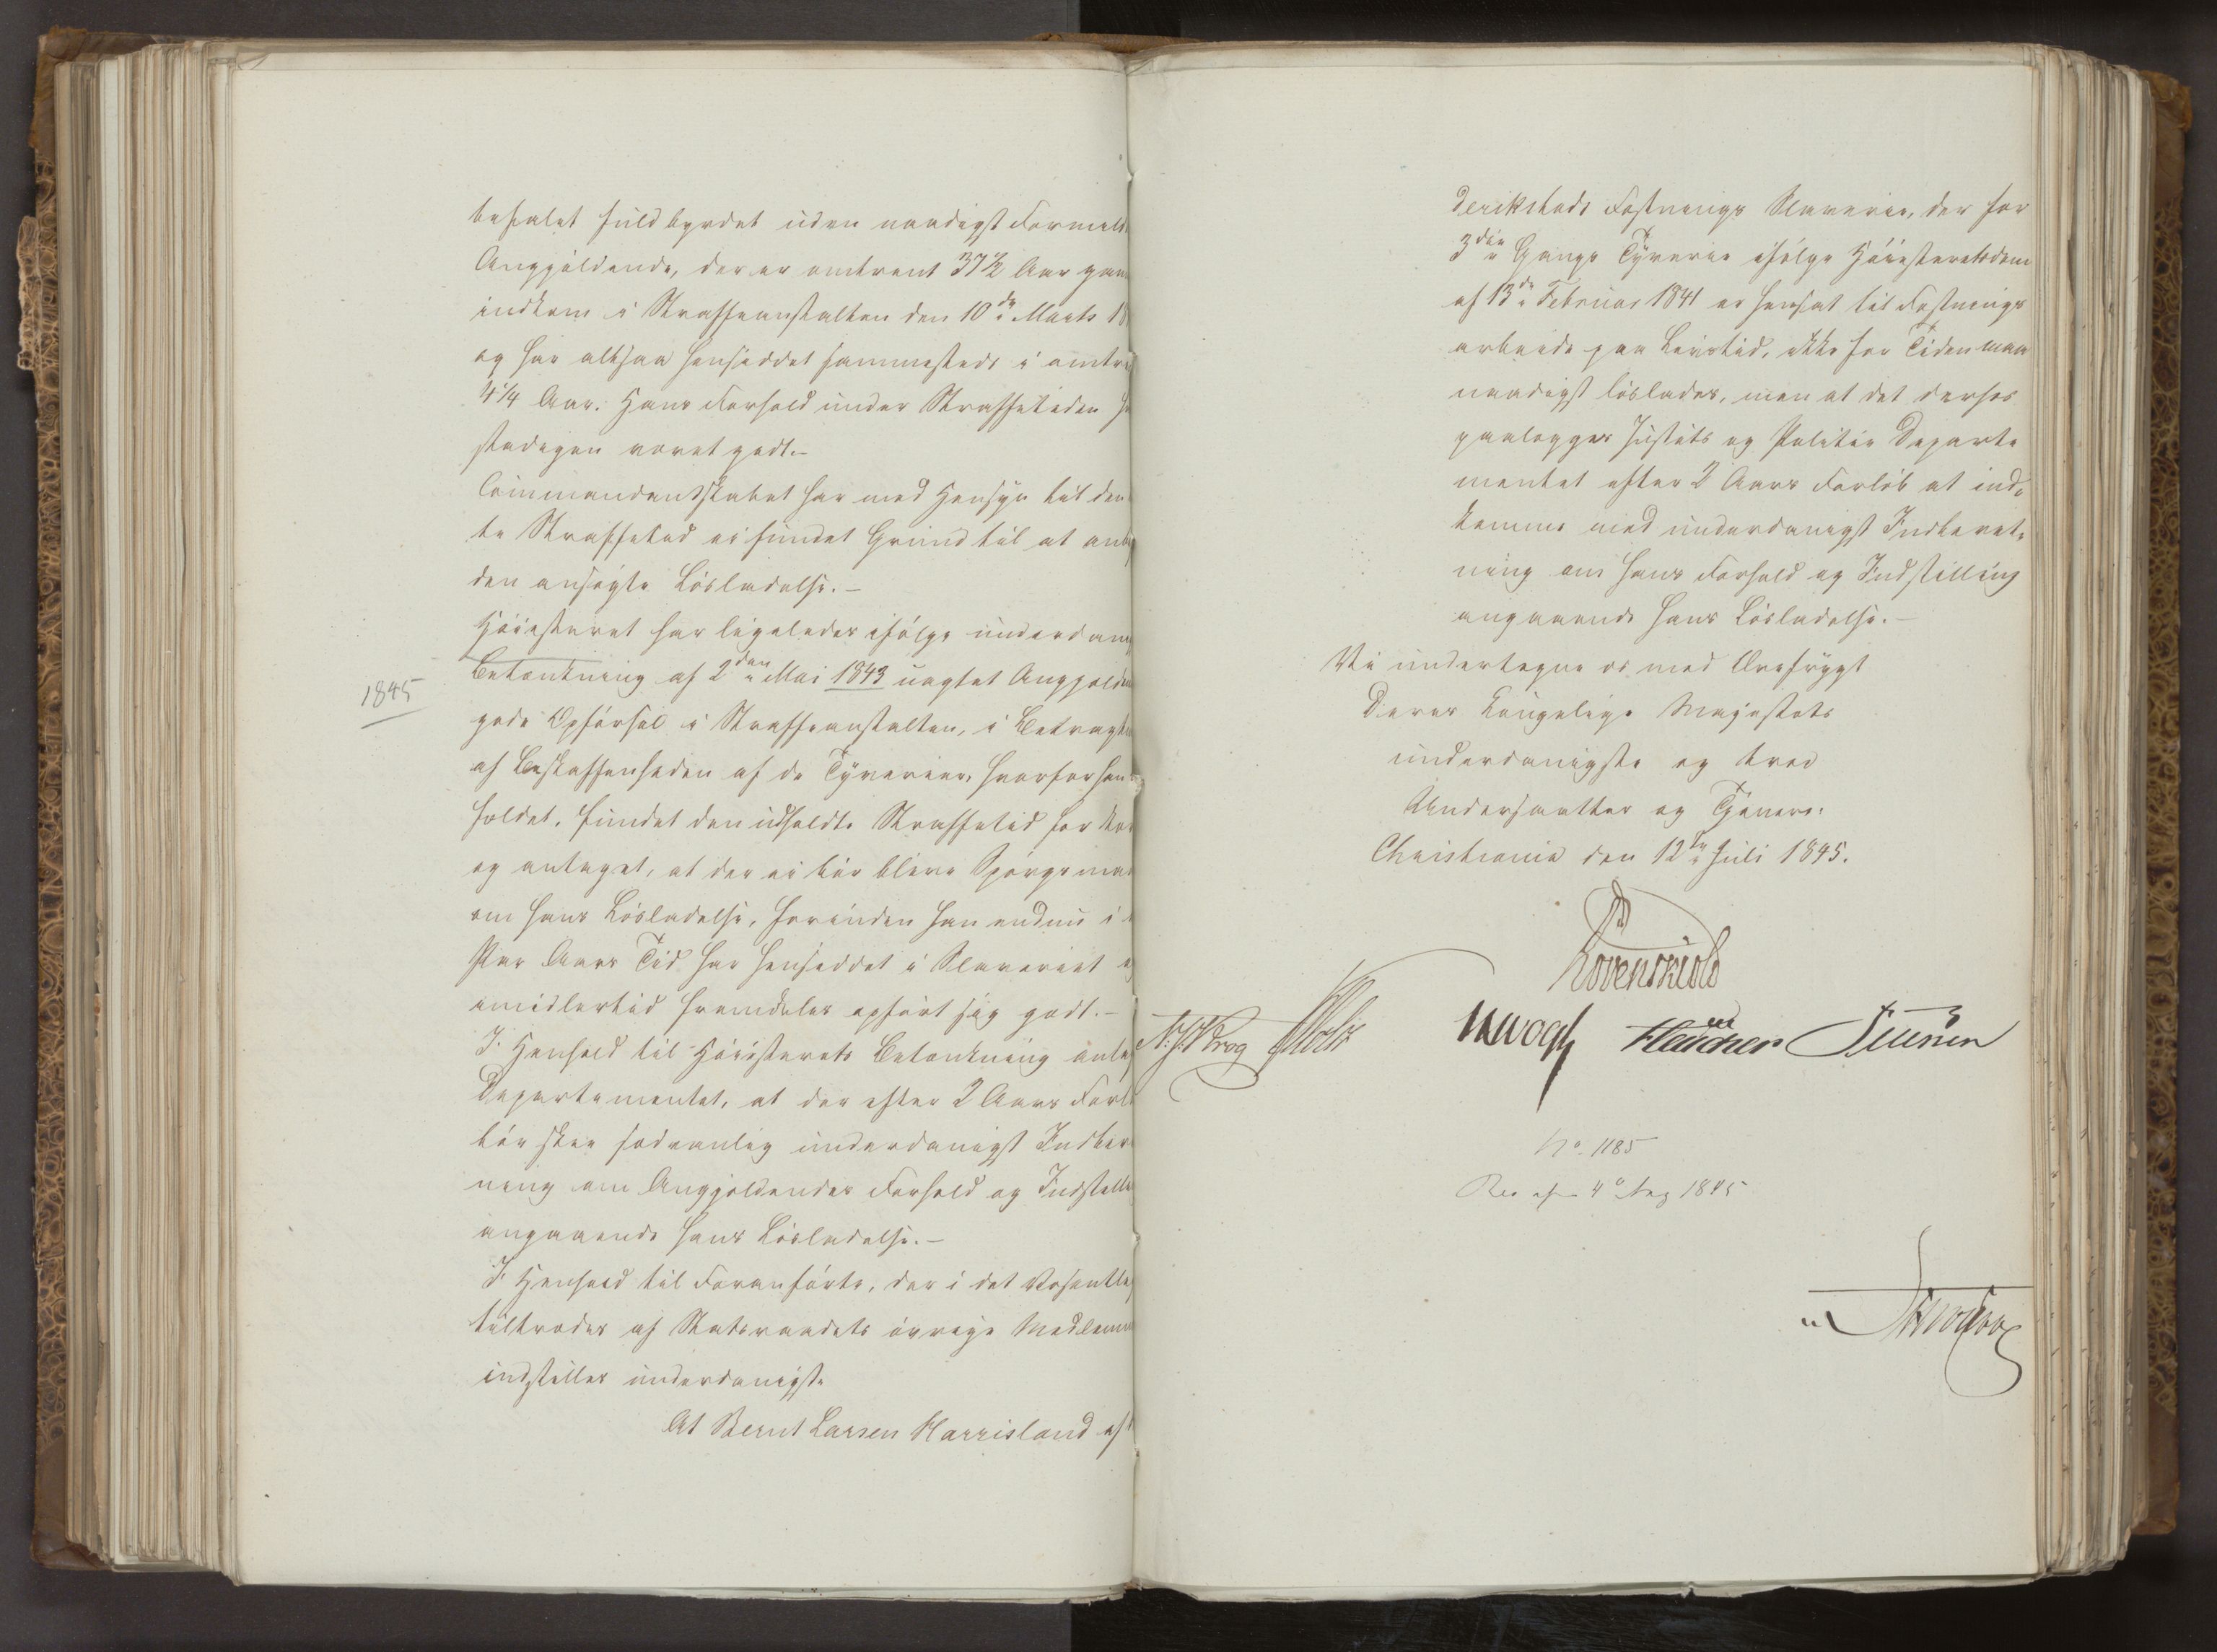 befalet fuldbyrdet uden naadigst Formild
Angjældende, der er omtrent 37½ Aar gam
indkom i Straffeanstalten den 10de Marts 18
og har altsaa hensiddet sammesteds i omtr
4¼ Aar. Hans Forhold under Straffetiden h
stadigen været godt.-
Commandantskabet har med Hensyn til den
te Straffetid ei fundet Grund til at anb
den ansøgte Løsladelse.-
Høiesteret har ligeledes ifølge underdan
Betænkning af 2den Mai 1843 uagtet Angjælden
1845
gode Opførsel i Straffeanstalten, i Betragtn
af Beskaffenheden af de Tyverier, hvorfor han
fældet, fundet den udholdte Straffetid for kor
og antaget, at der ei bør blive Spørgsmaa
om hans Løsladelse, forinden han endnu i
Par Aars Tid har hensiddet i Slaveriet o
imidlertid fremdeles opført sig godt.-
I Henhold til Høiesterets Betænkning anta
Departementet, at der efter 2 Aars Forl
bør skee sædvanlig underdanigst Indber
ning om Angjældendes Forhold og Indstill
angaaende hans Løsladelse.-
I Henhold til Foranførte, der i det Væsentlig
tiltrædes af Statsraadets øvrige Medlemm
indstilles underdanigst
At Bernt Larsen Harrisland af
deriksstads Fæstnings Slaverie, der for
3die Gangs Tyverie ifølge Høiesteretsdom
af 13de Februar 1841 er hensat til Fæstnings
arbeide paa Livstid, ikke for Tiden maa
naadigst løslades, men at det derhos
paalægges Justits og Politie Departe
mentet efter 2 Aars Forløb at ind-
komme med underdanigst Indberet-
ning om hans Forhold og Indstilling
angaaende hans Løsladelse.-
Vi undertegne os med Ærefrygt
Deres Kongelige Majestæts
underdanigste og troe
Undersaatter og Tjenere.
Christiania den 12te Juli 1845.
Løvenskiold
N. J. Krog Holst JHVogt
No. 1185
4 Aug 1845